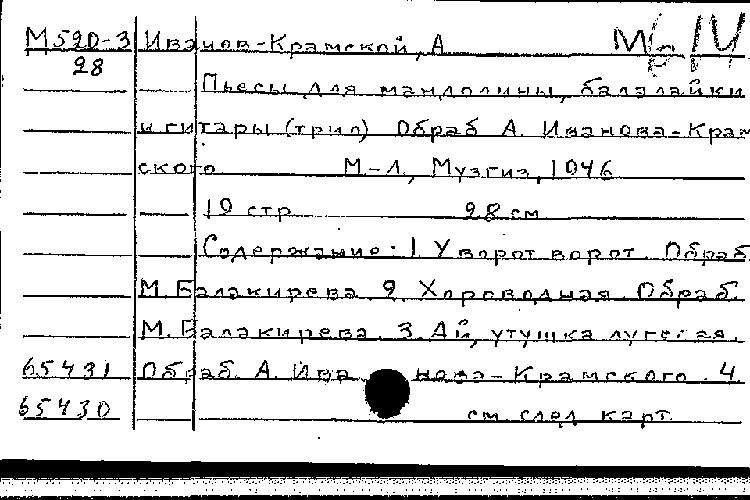 М520-3 Иванов-Крамской, А
28
Пьесы для мандолины, балалайки
и гитары (трио) Обраб А. Иванова-Крам
ского М-Л, Музгиз, 1946
19 стр 28 см
Содержание: 1 У ворот ворот. Обраб.
М. Балакирева. 2. Хороводная. Обраб.
М. Балакирева. 3. Ай, утушка луговая.
65431 Обраб. А. Иванова-Крамского. 4.
65430 см след карт.